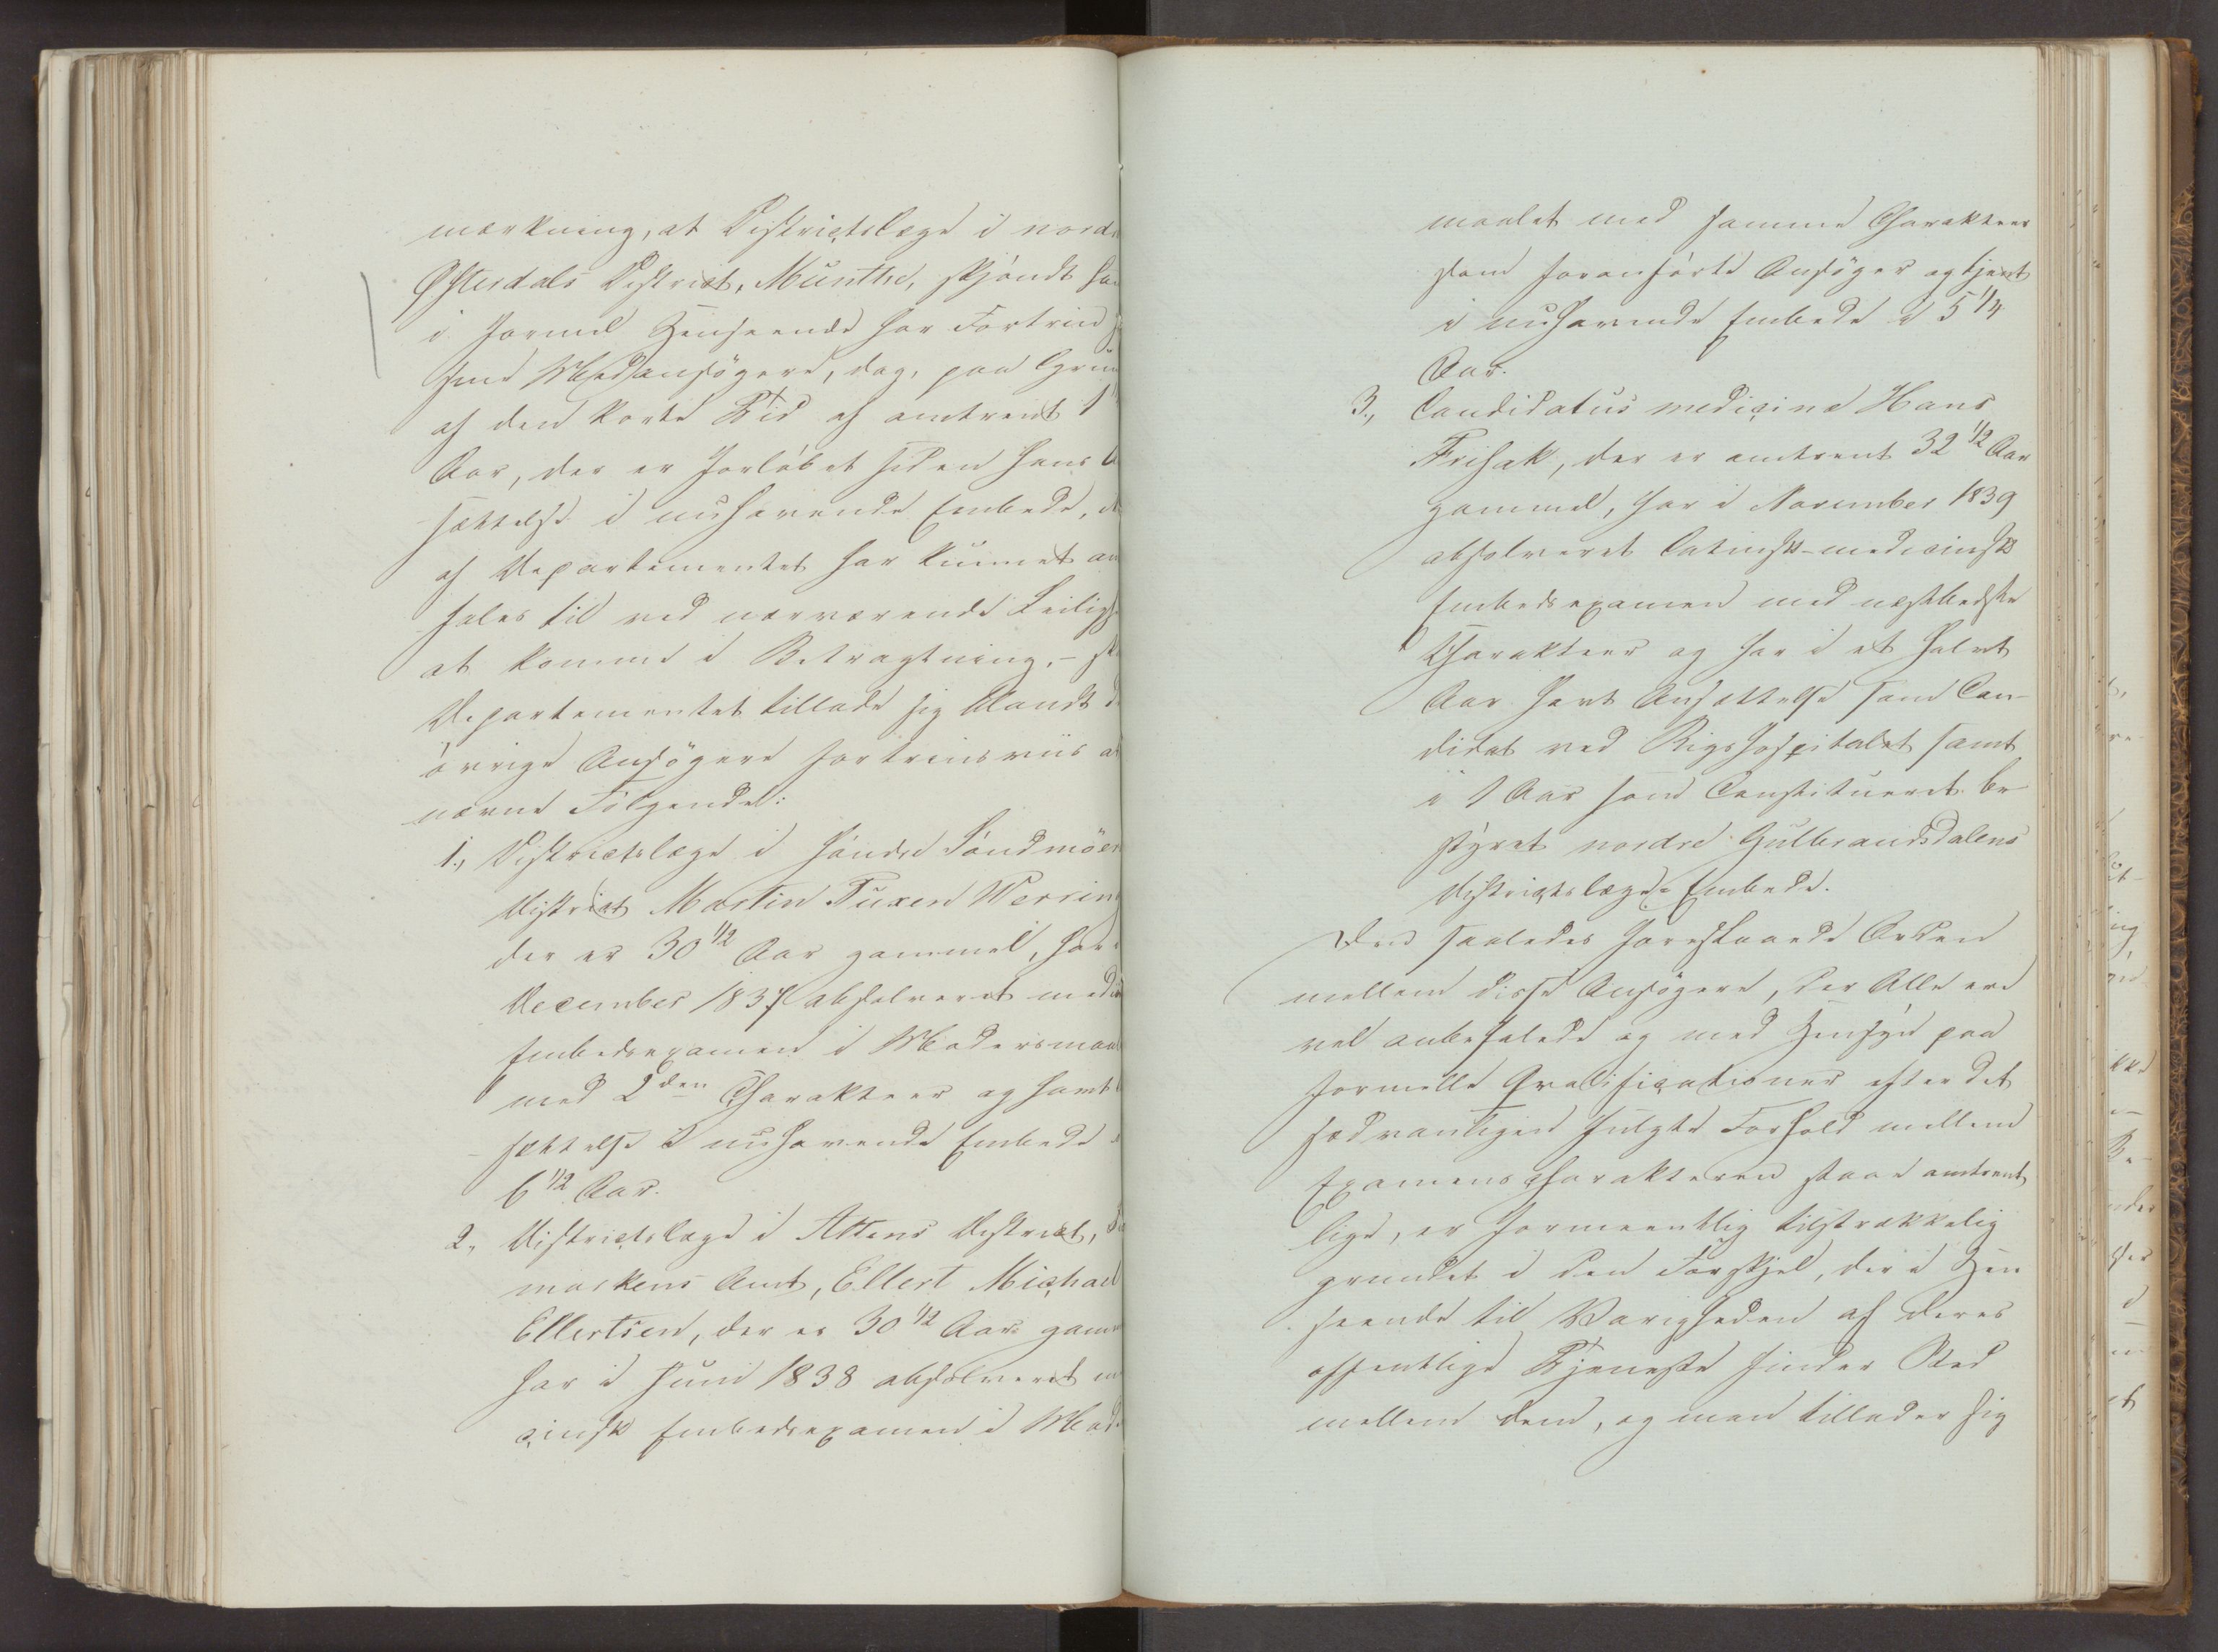 mærkning, at Districtslæge i nord
Østerdals District, Münthe, skjöndt ha
i formel Henseende har Fortrin
sine Medansögere, dog, paa Grun
af den korte Tid af omtrent 1
Aar, der er forløbet siden hans A
sættelse i nuhavende Embede,
af Departementet har kunnet an
fales til ved nærværende Leiligh
at komme i Betragtning, –
Departementet tillade sig blandt d
övrige Ansögere fortrinsviis at
nævne Følgende:
1., Districtslæge i søndre Söndmöer
District Martin Tuxen Werring
der er 30 1/2 Aar gammel, har
December 1837 absolveret medi
Embedsexamen i Modersmaal
med 2den Charakteer og havt
sættelse i nuhavende Embede
6 1/2 Aar.
2., Districtslæge i Altens District,
markens Amt, Ellert Michael
Ellertsen, der er 30 1/2 Aar gam
har i Juni 1838 absolveret m
cinsk Embedsexamen i Mod
maalet med samme Charakteer
som foranførte Ansöger og tjent
i nuhavende Embede i 5 1/4
Aar.
3., Candidatus medicinæ Hans
Frisak, der er omtrent 32 1/2 Aar
gammel, har i November 1839
absolveret latinsk-medicinsk
Embedsexamen med næstbedste
Charakteer og har i et halvt
Aar havt Ansættelse som Can-
didat ved Rigshospitalet samt
i 1 Aar som Constitueret be
styret nordre Gulbrandsdalens
Districtslæge-Embede.
Den saaledes foreslaaede Orden
mellem disse Ansögere, der Alle ere
vel anbefalede og med Hensyn paa
formelle Qvalificationer efter det
sædvanligen fulgte Forhold mellem
Examenscharakteren staae omtrent
lige, er formeentlig tilstrækkelig
grundet i den Forskjel, der i Hen
seende til Varigheden af deres
offentlige Tjeneste finder Sted
mellem dem, og man tillader sig